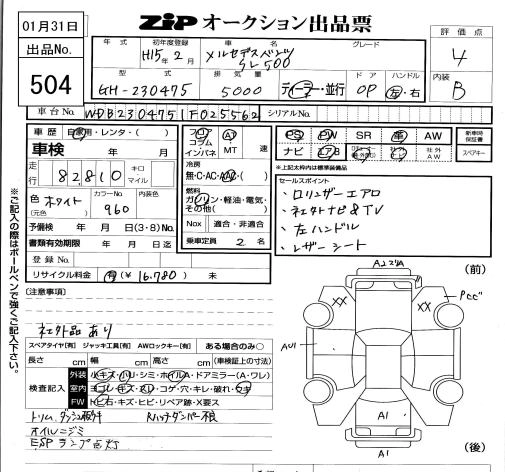 01月31日
出品No.
504
ZIP オークション出品票
評価点
4
内装
B
年式 初年度登録 車名 グレード
H15年2月 メルセデスベンツ
SL500
型式 排気量 ドア ハンドル
GH-230475 5000 ディーラー・並行 OP 左・右
車台No. WDB2304751F025562 シリアルNo.
車歴 自家用・レンタ・( )
車検 年 月
走行 82,810 キロ マイル
色 ホワイト (元色) カラーNo. 960 内装色
予備検 年 月 日(3・8)No.
書類有効期限 年 月 日迄
登録No.
リサイクル料金 有(¥ 16,780) 未
フロア コラム インパネ
A MT 速
冷房
無・C・AC・AAC・( )
燃料
ガソリン・軽油・電気・その他( )
Nox 適合・非適合
乗車定員 2 名
PS PW SR 革 AW
ナビ エアB 社外 AW
新車時保証書
スペアキー
*上記太枠内は標準装備品
セールスポイント
、ロリンザーエアロ
、社外ナビ&TV
、左ハンドル
、レザーシート
※ご記入の際はボールペンで強くご記入下さい。
[注意事項]
社外品あり
スペアタイヤ[有] ジャッキ工具[有] AWロックキー[有] ある場合のみ○
長さ cm 幅 cm 高さ cm (車検証上の寸法)
検査記入
外装 小キズ・ハリ・シミ・ホイルA・ドアミラー(A・ワレ)
室内 ヨゴレ・キズ・スレ・コゲ・穴・キレ・破れ・ウキ
FW トビ石・キズ・ヒビ・リペア跡・X要ス
トリム、ダッシュ板ウキ Rハッチダンパー不良
オイルニジミ
ESPランプ点灯
(前)
XX
XX
AU1
A1
A1
(後)